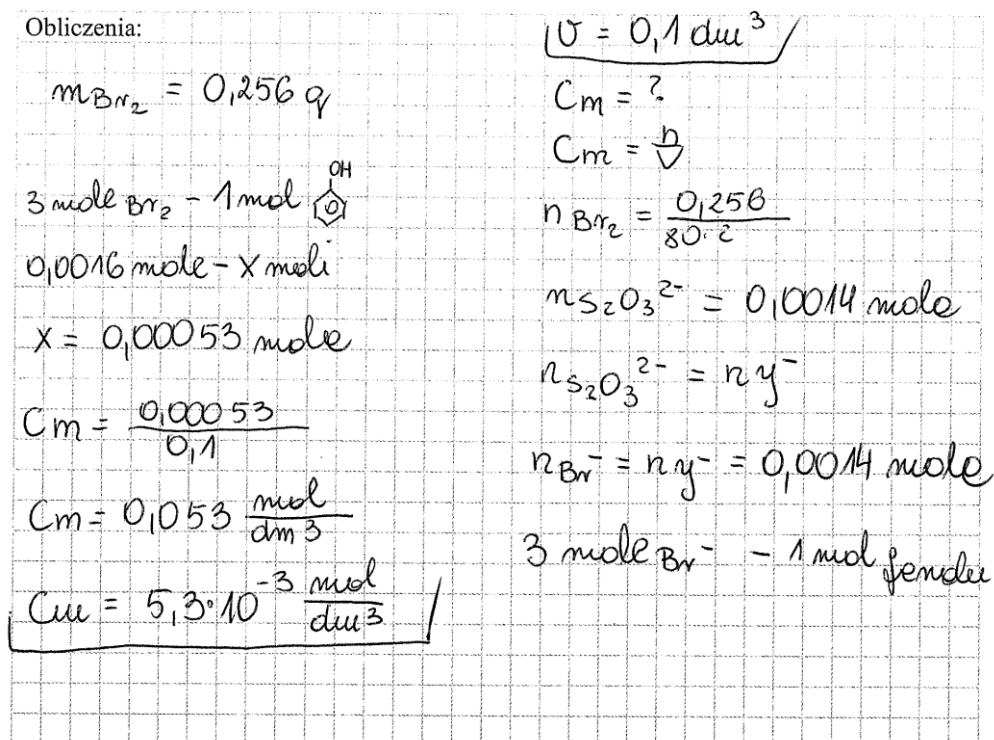 Obliczenia:
m Br₂ = 0,256 g
3 mole Br₂ - 1 mol OH
0,0016 mole - x moli
x = 0,00053 mole
Cm = 0,00053 / 0,1
Cm = 0,053 mol / dm³
Cm = 5,3·10⁻³ mol / dm³
V = 0,1 dm³
Cm = ?
Cm = n / V
n Br₂ = 0,256 / 80·2
n S₂O₃²⁻ = 0,0014 mole
n S₂O₃²⁻ = n y⁻
n Br⁻ = n y⁻ = 0,0014 mole
3 mole Br⁻ - 1 mol fenolu